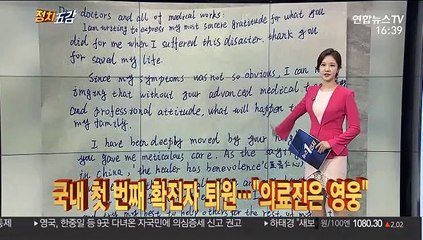 정치 슈광
연합뉴스TV
16:39
Dr doctors and all of medical works:
I am writing to express my most sincere gratitude for what you
did for me when I suffered this disaster. thank you
for saved my life.
Since my symptoms was not so obvious, I can
imaging that without your advanced medical
and professional attitude, what will happen to
my family.
I have been deeply moved by your
you gave me meticulous care. As the saying
in china, "the healer has benevolence
국내 첫 번째 확진자 퇴원…"의료진은 영웅"
영국, 한중일 등 9곳 다녀온 자국민에 의심증세 신고 권고
원/100엔 1080.30 ▲2.02